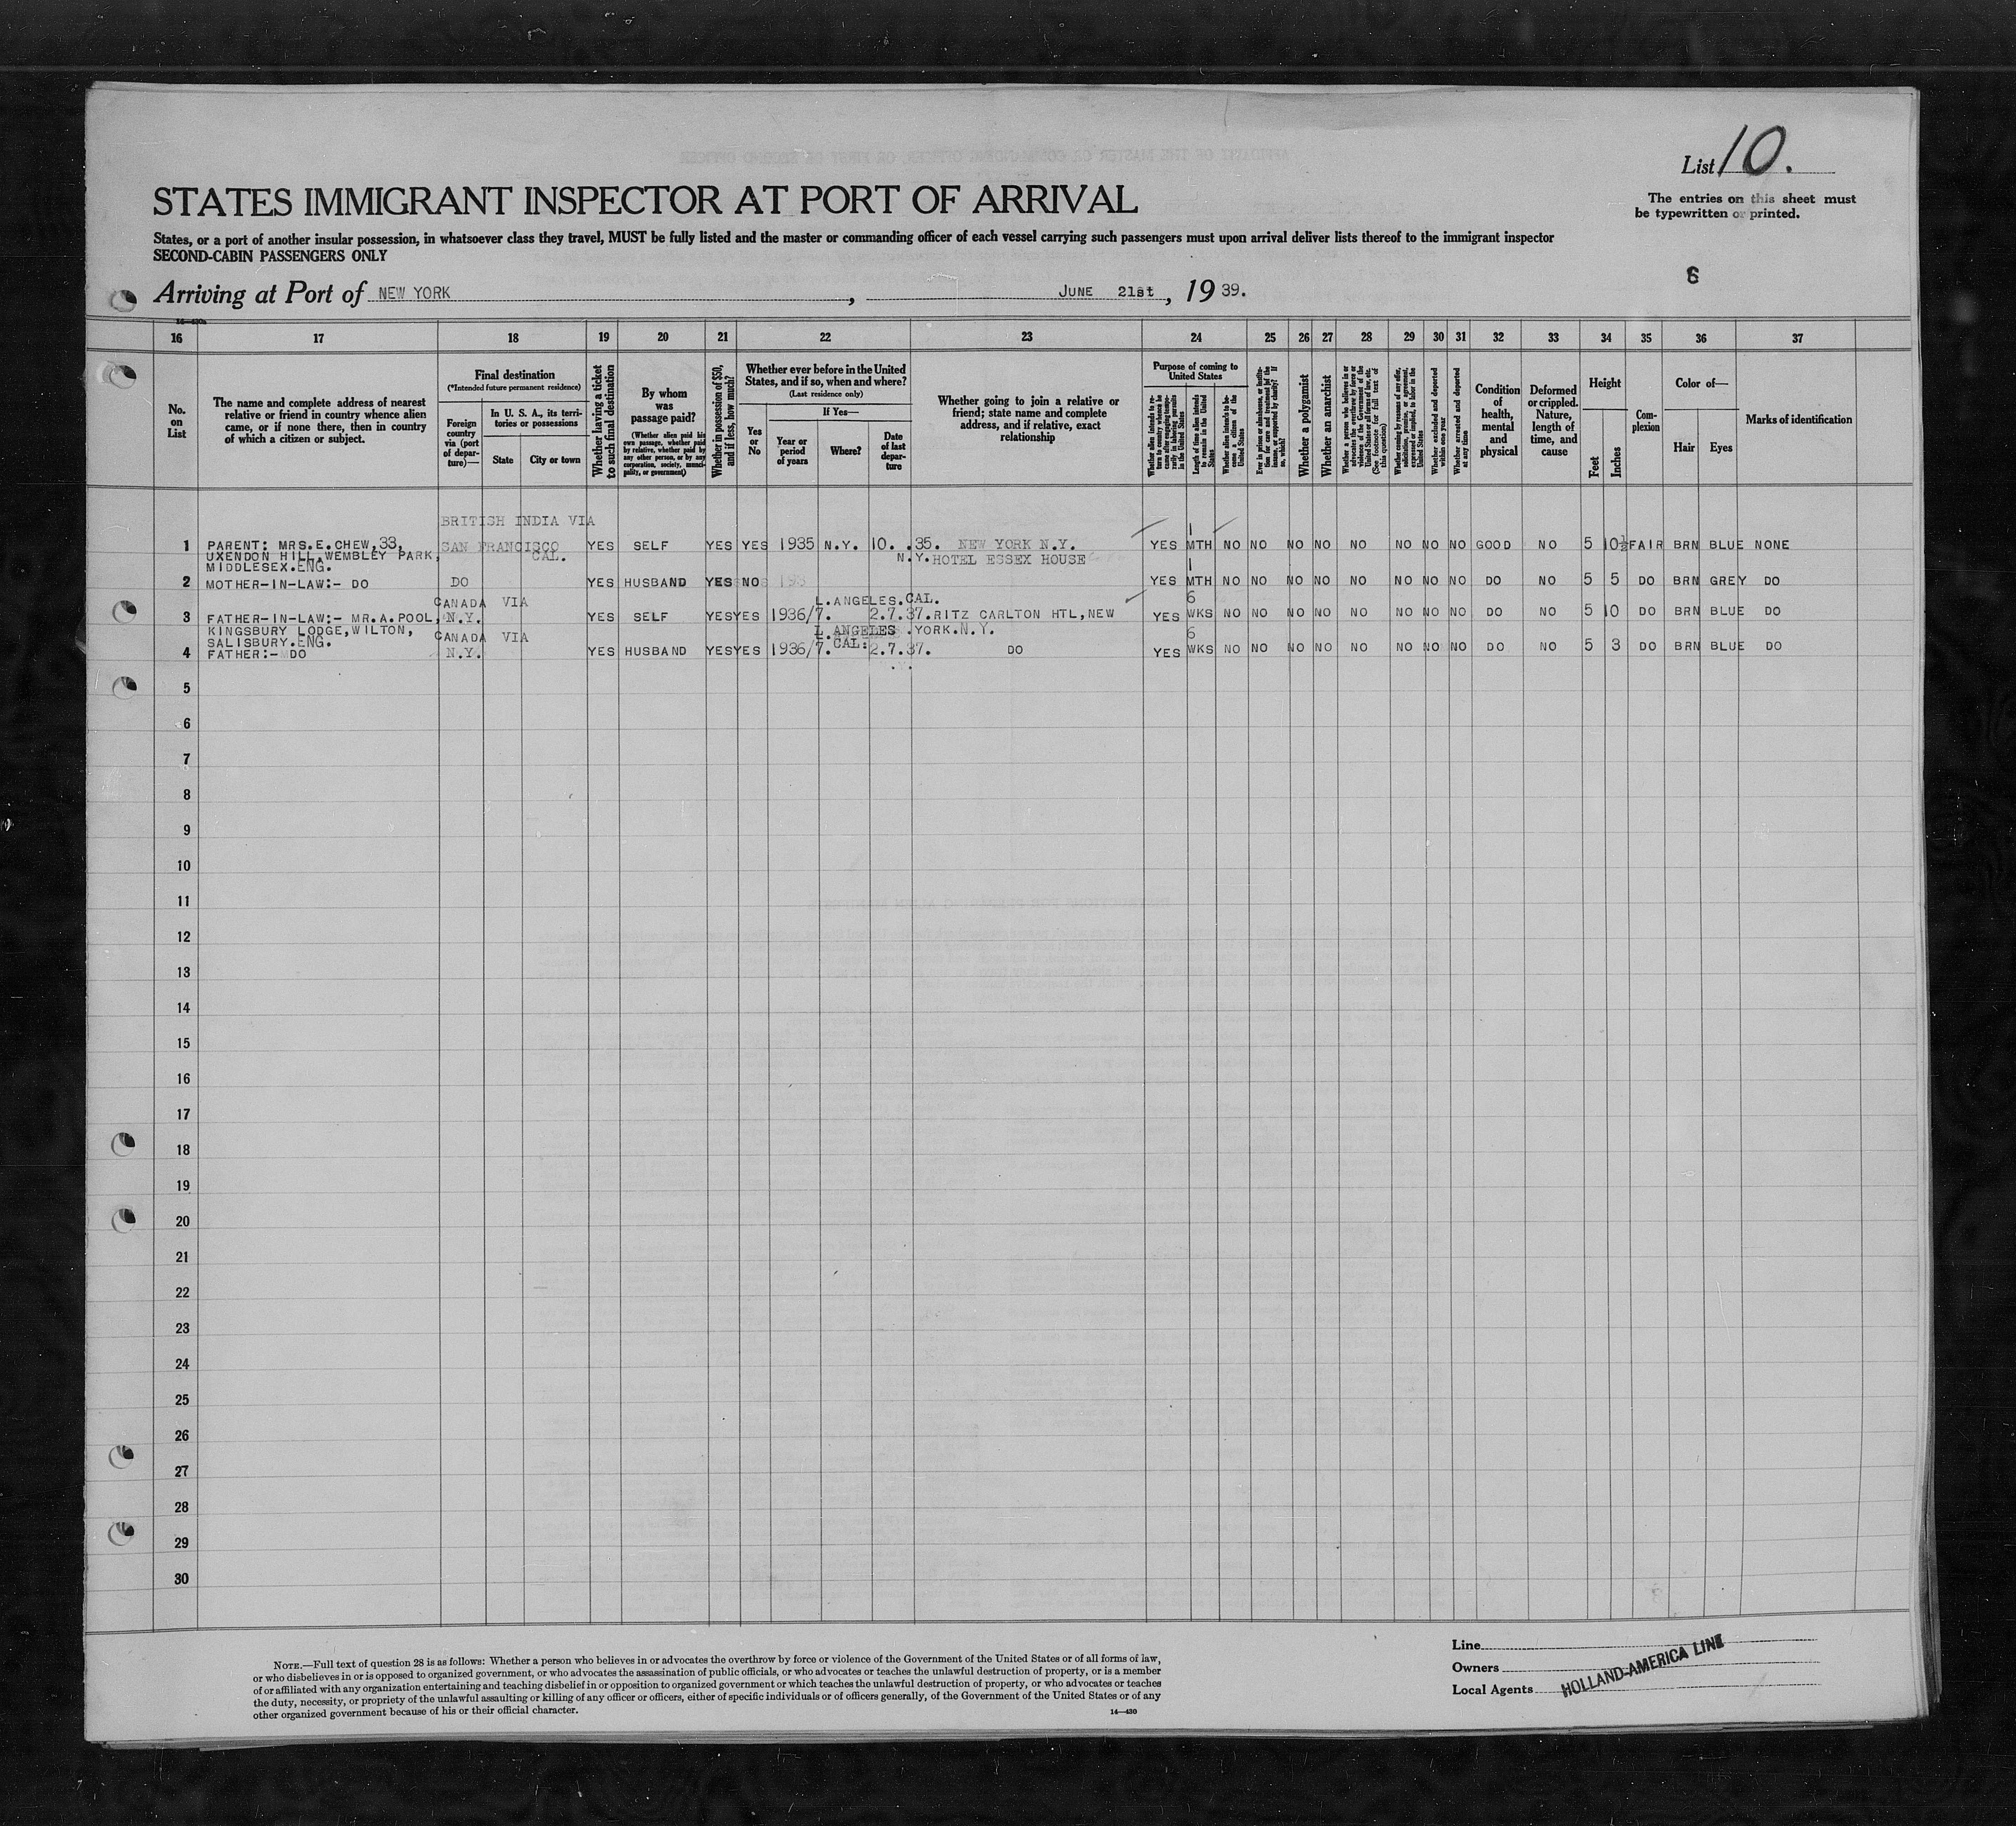 List 10.
The entries on this sheet must
be typewritten or printed.
STATES IMMIGRANT INSPECTOR AT PORT OF ARRIVAL
States, or a port of another insular possession, in whatsoever class they travel, MUST be fully listed and the master or commanding officer of each vessel carrying such passengers must upon arrival deliver lists thereof to the immigrant inspector
SECOND-CABIN PASSENGERS ONLY
6
Arriving at Port of NEW YORK, JUNE 21st, 19 39.
16 17 18 19 20 21 22 23 24 25 26 27 28 29 30 31 32 33 34 35 36 37
No. on List
The name and complete address of nearest relative or friend in country whence alien came, or if none there, then in country of which a citizen or subject.
Final destination
(*Intended future permanent residence)
Foreign country via (port of departure)—
In U. S. A., its territories or possessions
State
City or town
Whether having a ticket to such final destination
By whom was passage paid?
(Whether alien paid his own passage, whether paid by relative, whether paid by any other person, or by any corporation, society, municipality, or government)
Whether in possession of $50, and if less, how much?
Whether ever before in the United States, and if so, when and where?
(Last residence only)
Yes or No
If Yes—
Year or period of years
Where?
Date of last departure
Whether going to join a relative or friend; state name and complete address, and if relative, exact relationship
Purpose of coming to United States
Length of time alien intends to remain in the United States
Whether alien intends to become a citizen of the United States
Whether a polygamist
Whether an anarchist
Whether excluded and deported within one year
Whether arrested and deported at any time
Condition of health, mental and physical
Deformed or crippled. Nature, length of time, and cause
Height
Feet
Inches
Complexion
Color of—
Hair
Eyes
Marks of identification
BRITISH INDIA VIA
1 PARENT: MRS.E.CHEW,33, SAN FRANCISCO YES SELF YES YES 1935 N.Y. 10. .35. NEW YORK N.Y. YES 1 MTH NO NO NO NO NO NO NO NO GOOD NO 5 10½ FAIR BRN BLUE NONE
UXENDON HILL,WEMBLEY PARK, CAL. N.Y. HOTEL ESSEX HOUSE
MIDDLESEX.ENG.
2 MOTHER-IN-LAW:- DO DO YES HUSBAND YES NO YES 1 MTH NO NO NO NO NO NO NO NO DO NO 5 5 DO BRN GREY DO
CANADA VIA L.ANGELES.CAL.
3 FATHER-IN-LAW:- MR.A.POOL, N.Y. YES SELF YES YES 1936/7. 2.7.37. RITZ CARLTON HTL,NEW YES 6 WKS NO NO NO NO NO NO NO NO DO NO 5 10 DO BRN BLUE DO
KINGSBURY LODGE,WILTON, L.ANGELES YORK.N.Y.
SALISBURY.ENG. CANADA VIA CAL:
4 FATHER:- DO N.Y. YES HUSBAND YES YES 1936/7. 2.7.37. DO YES 6 WKS NO NO NO NO NO NO NO NO DO NO 5 3 DO BRN BLUE DO
5
6
7
8
9
10
11
12
13
14
15
16
17
18
19
20
21
22
23
24
25
26
27
28
29
30
NOTE.—Full text of question 28 is as follows: Whether a person who believes in or advocates the overthrow by force or violence of the Government of the United States or of all forms of law,
or who disbelieves in or is opposed to organized government, or who advocates the assassination of public officials, or who advocates or teaches the unlawful destruction of property, or is a member
of or affiliated with any organization entertaining and teaching disbelief in or opposition to organized government or which teaches the unlawful destruction of property, or who advocates or teaches
the duty, necessity, or propriety of the unlawful assaulting or killing of any officer or officers, either of specific individuals or of officers generally, of the Government of the United States or of any
other organized government because of his or their official character.
14—430
Line
Owners
Local Agents
HOLLAND-AMERICA LINE